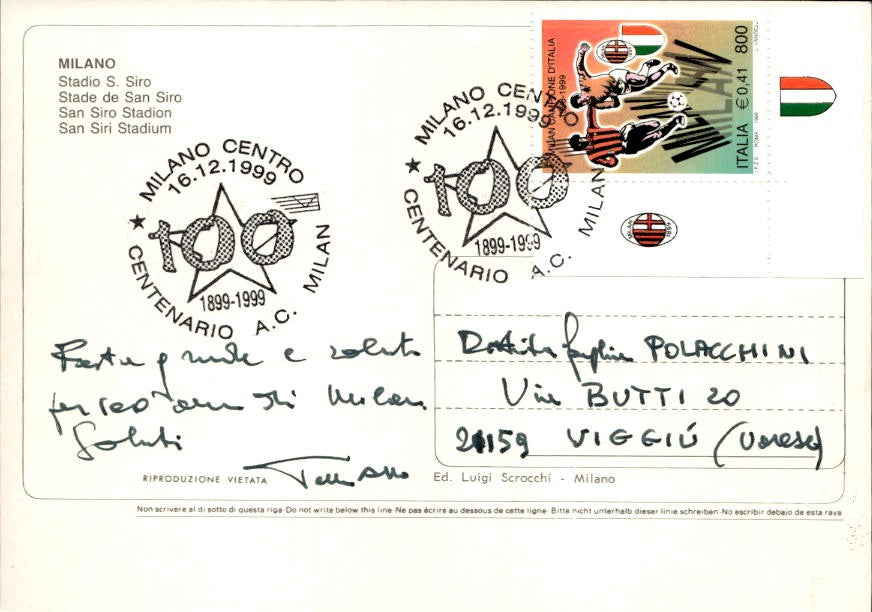 MILANO
Stadio S. Siro
Stade de San Siro
San Siro Stadion
San Siri Stadium
MILANO CENTRO
16.12.1999
100
1899-1999
CENTENARIO A.C. MILAN
MILANO CENTRO
16.12.1999
100
1899-1999
CENTENARIO A.C. MILAN
MILAN CAMPIONE D'ITALIA
1998-1999
MILAN
ITALIA €0,41 800
I.P.Z.S. ROMA 1999
MILAN
1899
Festa grande e saluti
per 100 anni di Milan
Saluti
famiglia POLACCHINI
Via BUTTI 20
21059 VIGGIÚ (Varese)
RIPRODUZIONE VIETATA
Ed. Luigi Scrocchi - Milano
Non scrivere al di sotto di questa riga-Do not write below this line-Ne pas écrire au dessous de cette ligne-Bitte nicht unterhalb dieser linie schreiben-No escribir debajo de esta raya